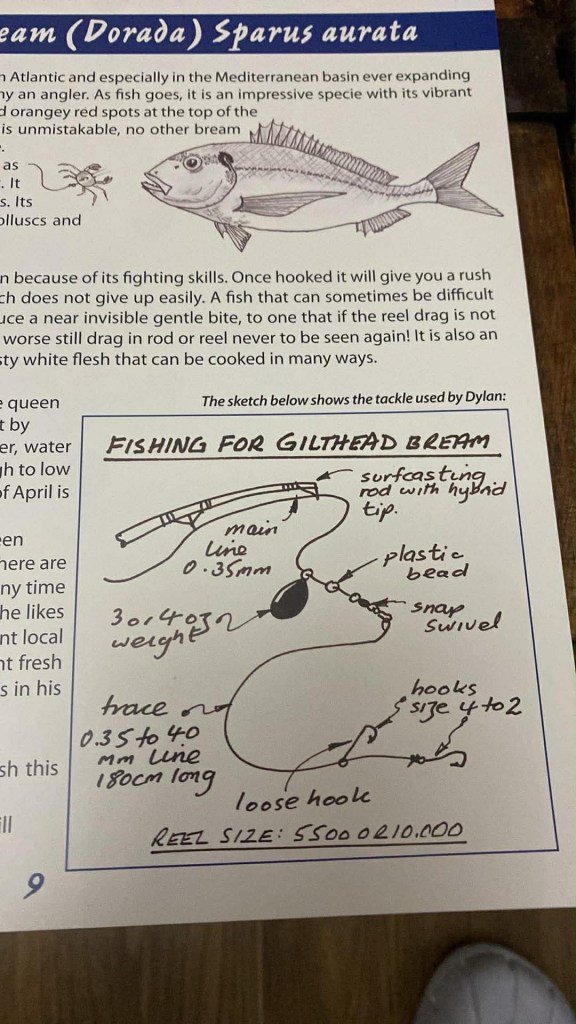 eam (Dorada) Sparus aurata
Atlantic and especially in the Mediterranean basin ever expanding
ny an angler. As fish goes, it is an impressive specie with its vibrant
d orangey red spots at the top of the
is unmistakable, no other bream
as
. It
s. Its
olluscs and
n because of its fighting skills. Once hooked it will give you a rush
ch does not give up easily. A fish that can sometimes be difficult
uce a near invisible gentle bite, to one that if the reel drag is not
worse still drag in rod or reel never to be seen again! It is also an
sty white flesh that can be cooked in many ways.
e queen
t by
er, water
gh to low
of April is
een
here are
ny time
he likes
nt local
nt fresh
s in his
sh this
ill
9
The sketch below shows the tackle used by Dylan:
FISHING FOR GILTHEAD BREAM
surfcasting
rod with hybrid
tip.
main
line
0.35mm
plastic
bead
3 or 4 oz
weight
snap
swivel
trace
0.35 to 40
mm line
180cm long
hooks
size 4 to 2
loose hook
REEL SIZE: 5500 OR 10.000